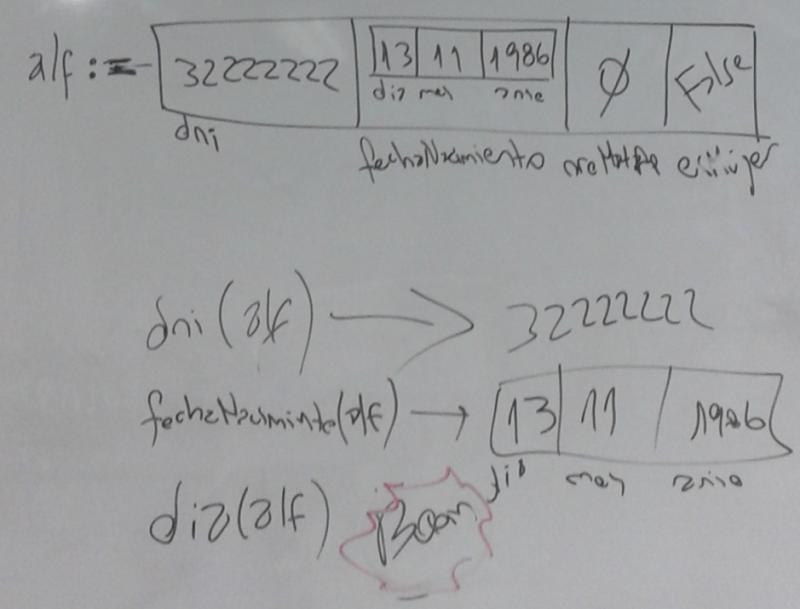 alf := 32222222 13 11 1986 Ø False
dia mes
dni
fechaNacimiento esMujer
dni(alf) → 32222222
fechaNacimiento(alf) → 13 11 1986
dia mes
dia(alf) Boom